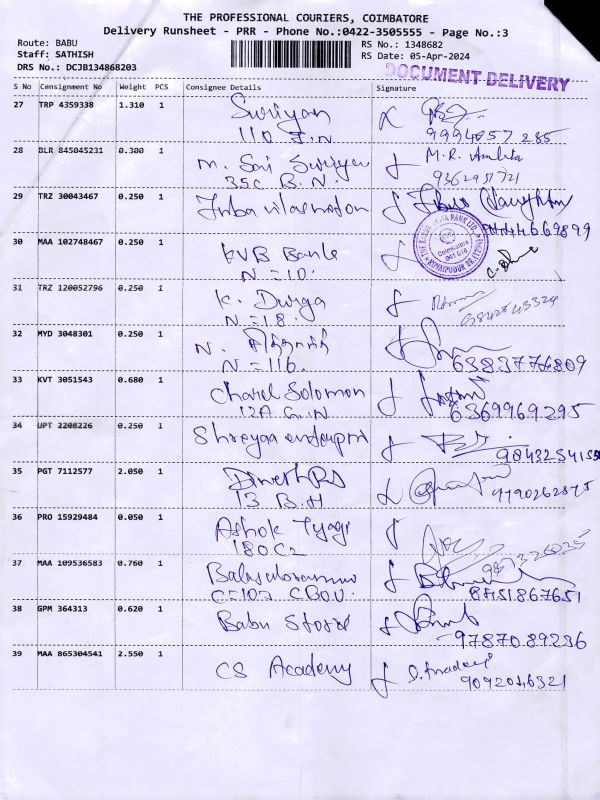 THE PROFESSIONAL COURIERS, COIMBATORE
Delivery Runsheet - PRR - Phone No.:0422-3505555 - Page No.:3
Route: BABU
Staff: SATHISH
DRS No.: DCJB134868203
RS No.: 1348682
RS Date: 05-Apr-2024
DOCUMENT DELIVERY
S No Consignment No Weight PCS Consignee Details Signature
27 TRP 4359338 1.310 PC1 Suriyan
110
28 BLR 845045231 0.300 1 M. Sai Suriya M.R. Amlita
35C B.N.
29 TRZ 30043467 0.250 1
30 MAA 102748467 0.250 1 KVB Bank
N=10.
Coimbatore
641 018
31 TRZ 120052796 0.250 1 K. Durga
N=18.
32 MYD 3048301 0.250 1 N.
N=116. 6383774809
33 KVT 3051543 0.680 1 Charel Solomon
12A G.N 6369969295
34 UPT 2208226 0.250 1 Shreyaa enterpri
35 PGT 7112577 2.050 1 Dinesh RS
13 B.H 9790262875
36 PRO 15929484 0.050 1 Ashok Tyagi
180C2
37 MAA 109536583 0.760 1
8451867651
38 GPM 364313 0.620 1 Babu Store
9787089236
39 MAA 865304541 2.550 1 CS Academy
9092046321